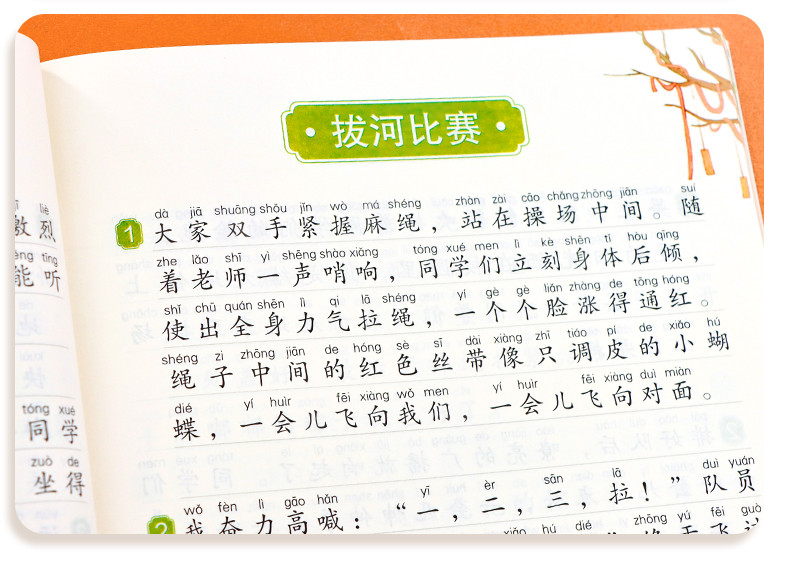 激烈
能听
同学
坐得
拔河比赛
1
dà jiā shuāng shǒu jǐn wò má shéng zhàn zài cāo chǎng zhōng jiān suí
大家双手紧握麻绳，站在操场中间。随
zhe lǎo shī yì shēng shào xiǎng tóng xué men lì kè shēn tǐ hòu qīng
着老师一声哨响，同学们立刻身体后倾，
shǐ chū quán shēn lì qi lā shéng yí gè gè liǎn zhàng de tōng hóng
使出全身力气拉绳，一个个脸涨得通红。
shéng zi zhōng jiān de hóng sè sī dài xiàng zhī tiáo pí de xiǎo hú
绳子中间的红色丝带像只调皮的小蝴
dié yí huìr fēi xiàng wǒ men yí huìr fēi xiàng duì miàn
蝶，一会儿飞向我们，一会儿飞向对面。
2
wǒ fèn lì gāo hǎn yī èr sān lā duì yuán
我奋力高喊：“一，二，三，拉！”队员
xiǎo hú dié zhōng yú fēi guò